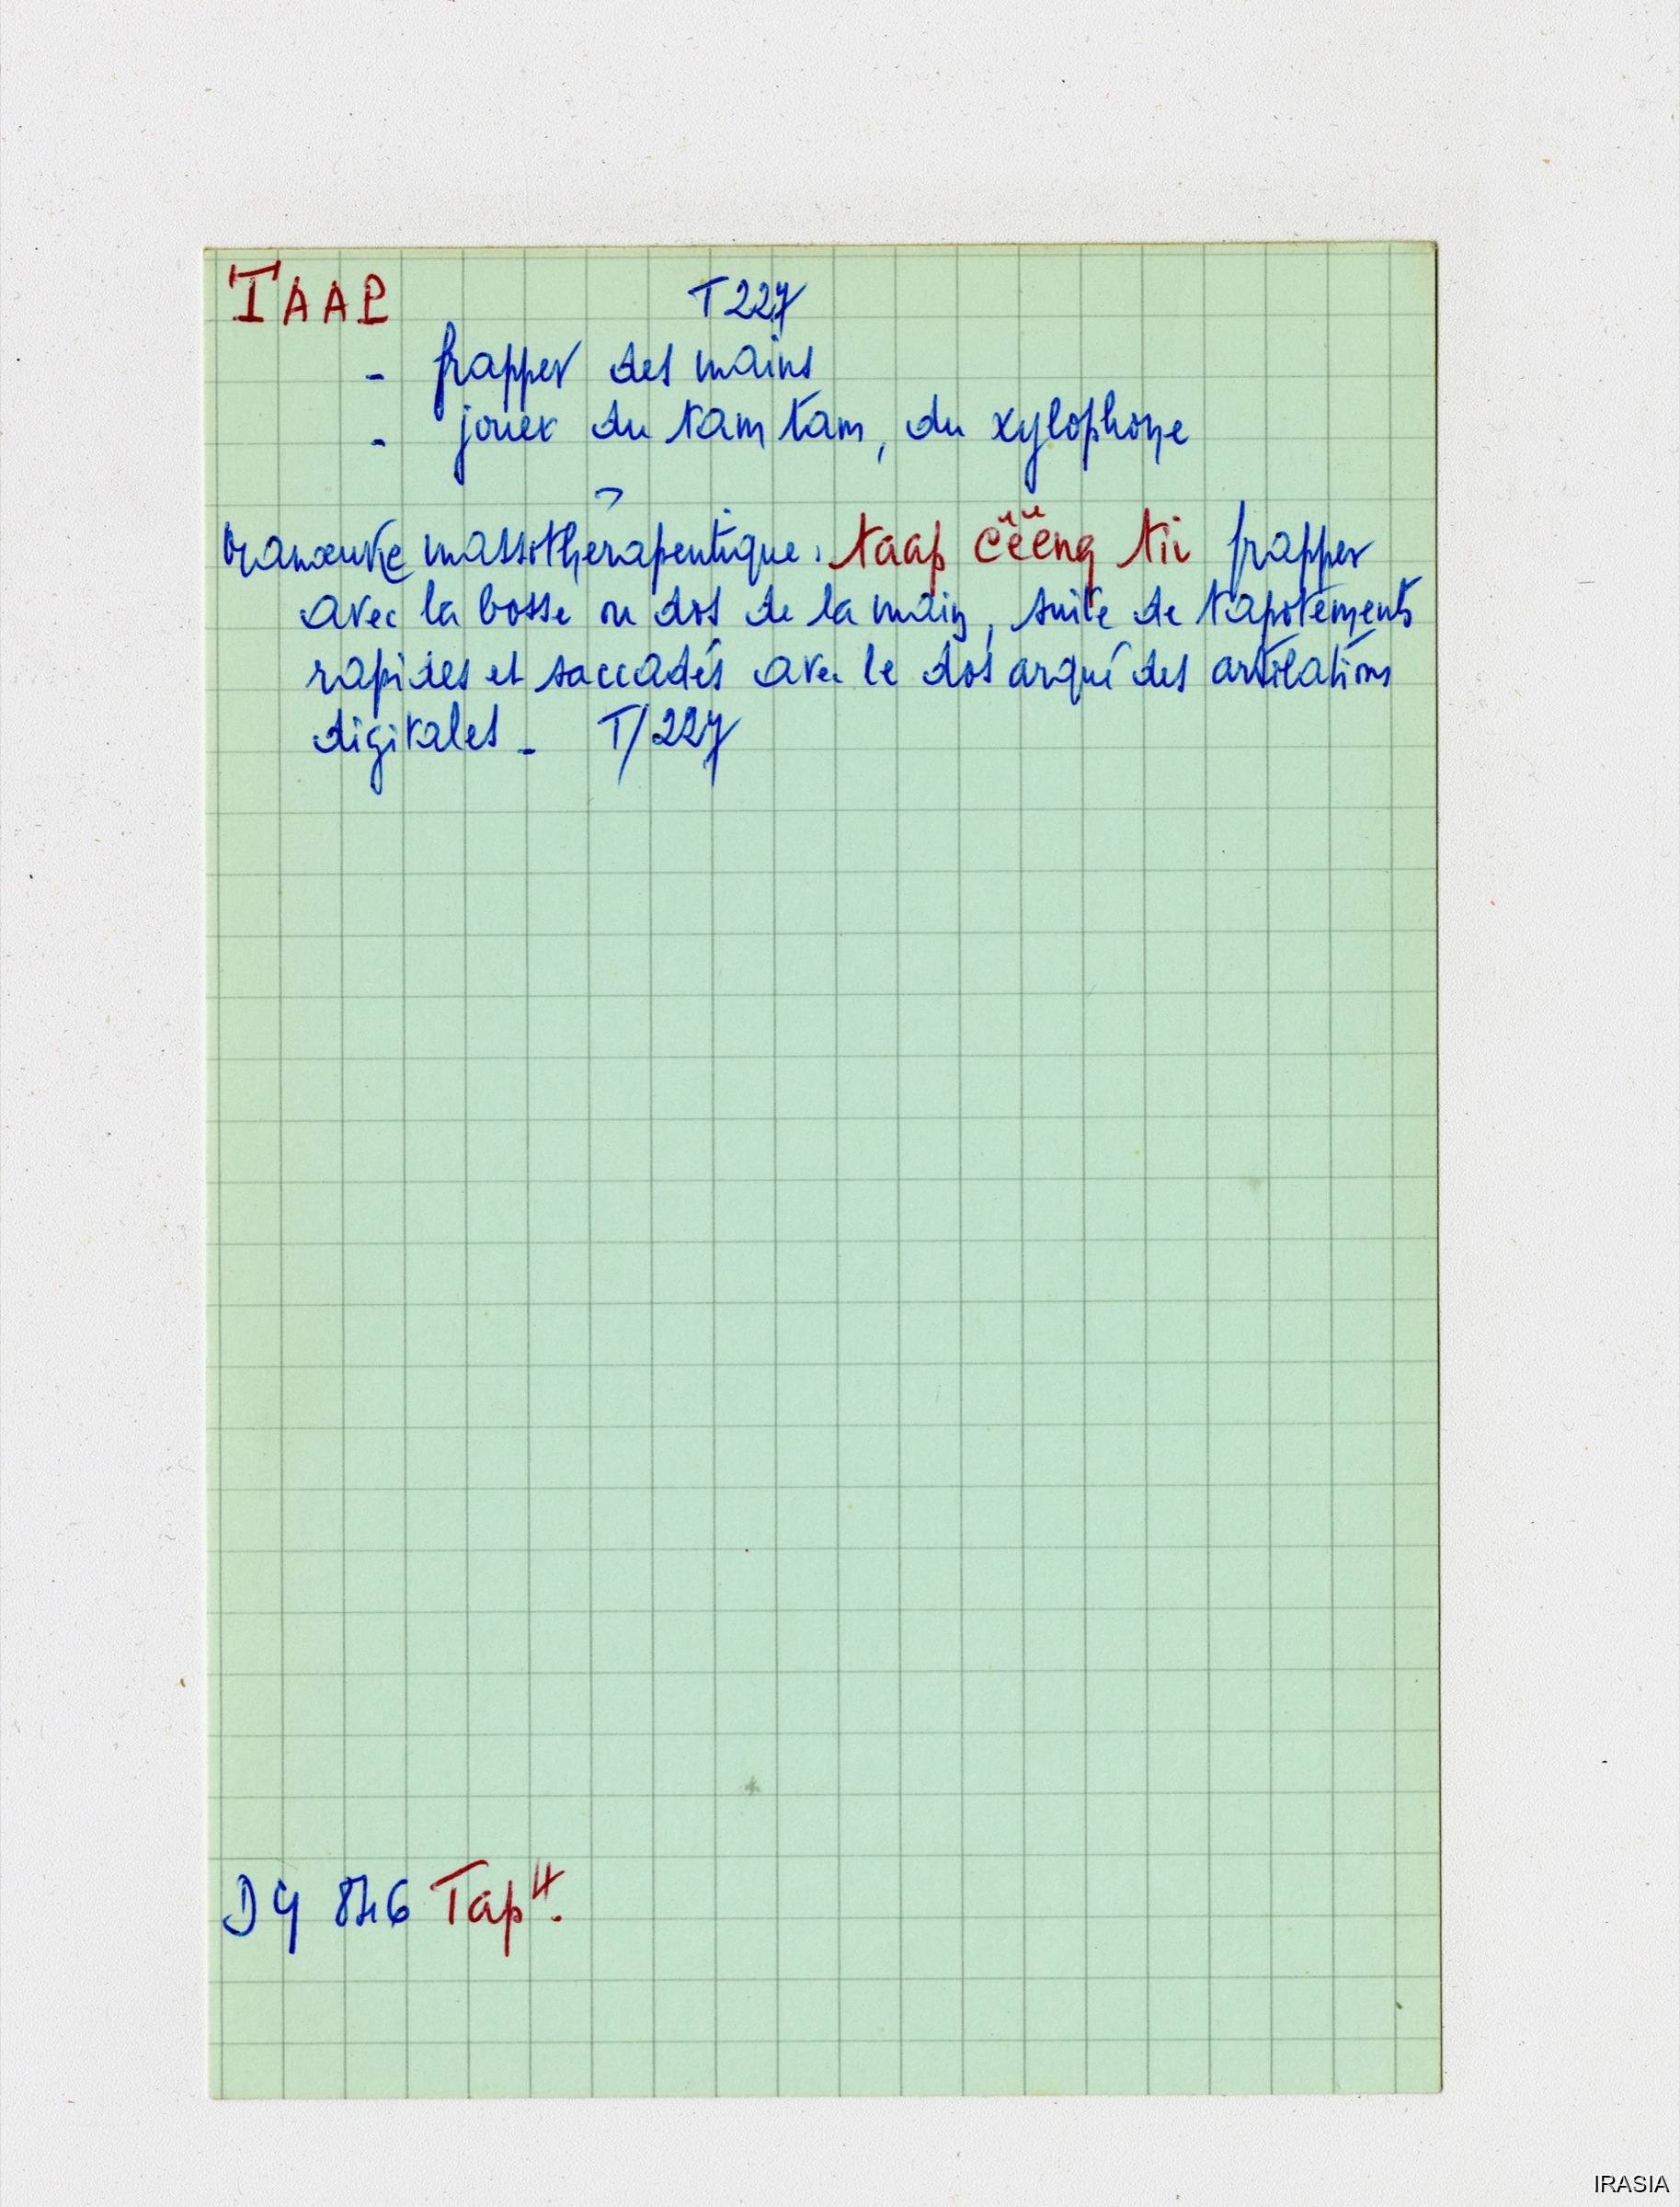 TAAP T227
- frapper des mains
- jouer du tam tam, du xylophone
manœuvre massothérapeutique. taap cëëng tii frapper
avec la bosse ou dos de la main, suite de tapotements
rapides et saccadés avec le dos arqué des articlations
digitales - T/227
DG 846 Tap⁴.
IRASIA